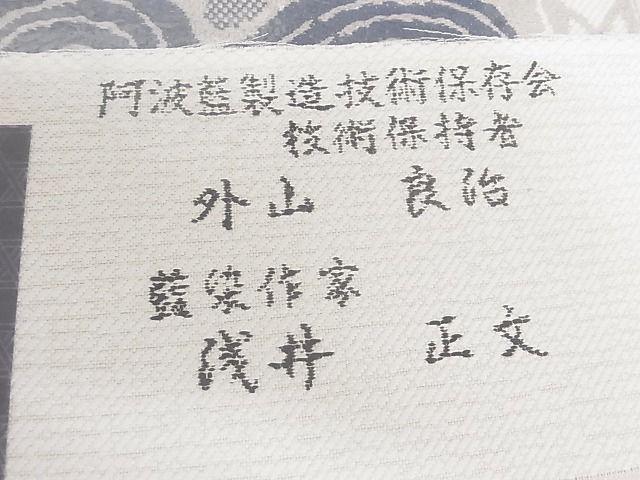 阿波藍製造技術保存会
技術保持者
外山 良治
藍染作家
浅井 正文